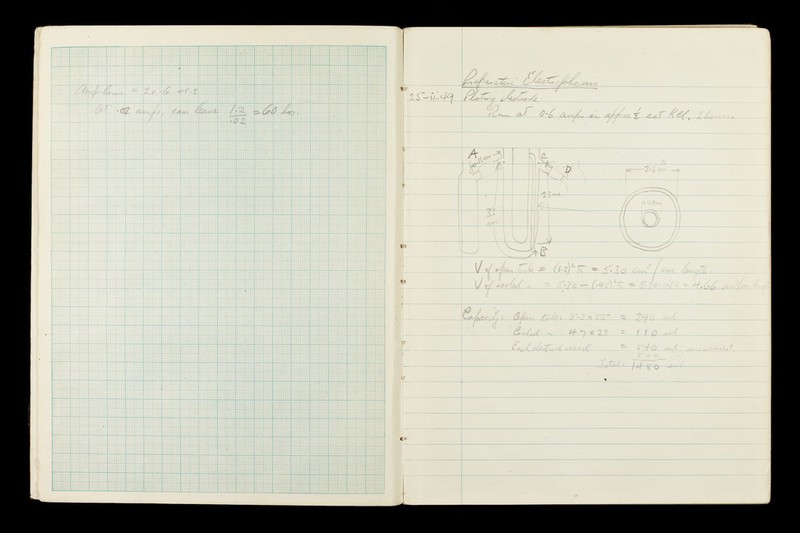 Amp hours = 2 × .6 = 1.2
at .02 amps, can leave 1.2 / .02 = 60 hrs.
Preparative Electrophoresis
25-ii-49 Plating electrode.
Run at 0.6 amps in approx ½ sat KCl, 2 hours.
A
D
23
2.6 cm
33
B
V of open tube = (1.3)² π = 5.30 cm³/cm length.
V of cooled " = 5.30 – = 4.66
Capacity: Open tube: 5.3 × 55 = 290 ml
Cooled " : 4.7 × 23 = 110 ml
Each electrode vessel = 540 ml measured.
540
Total: 1480 ml